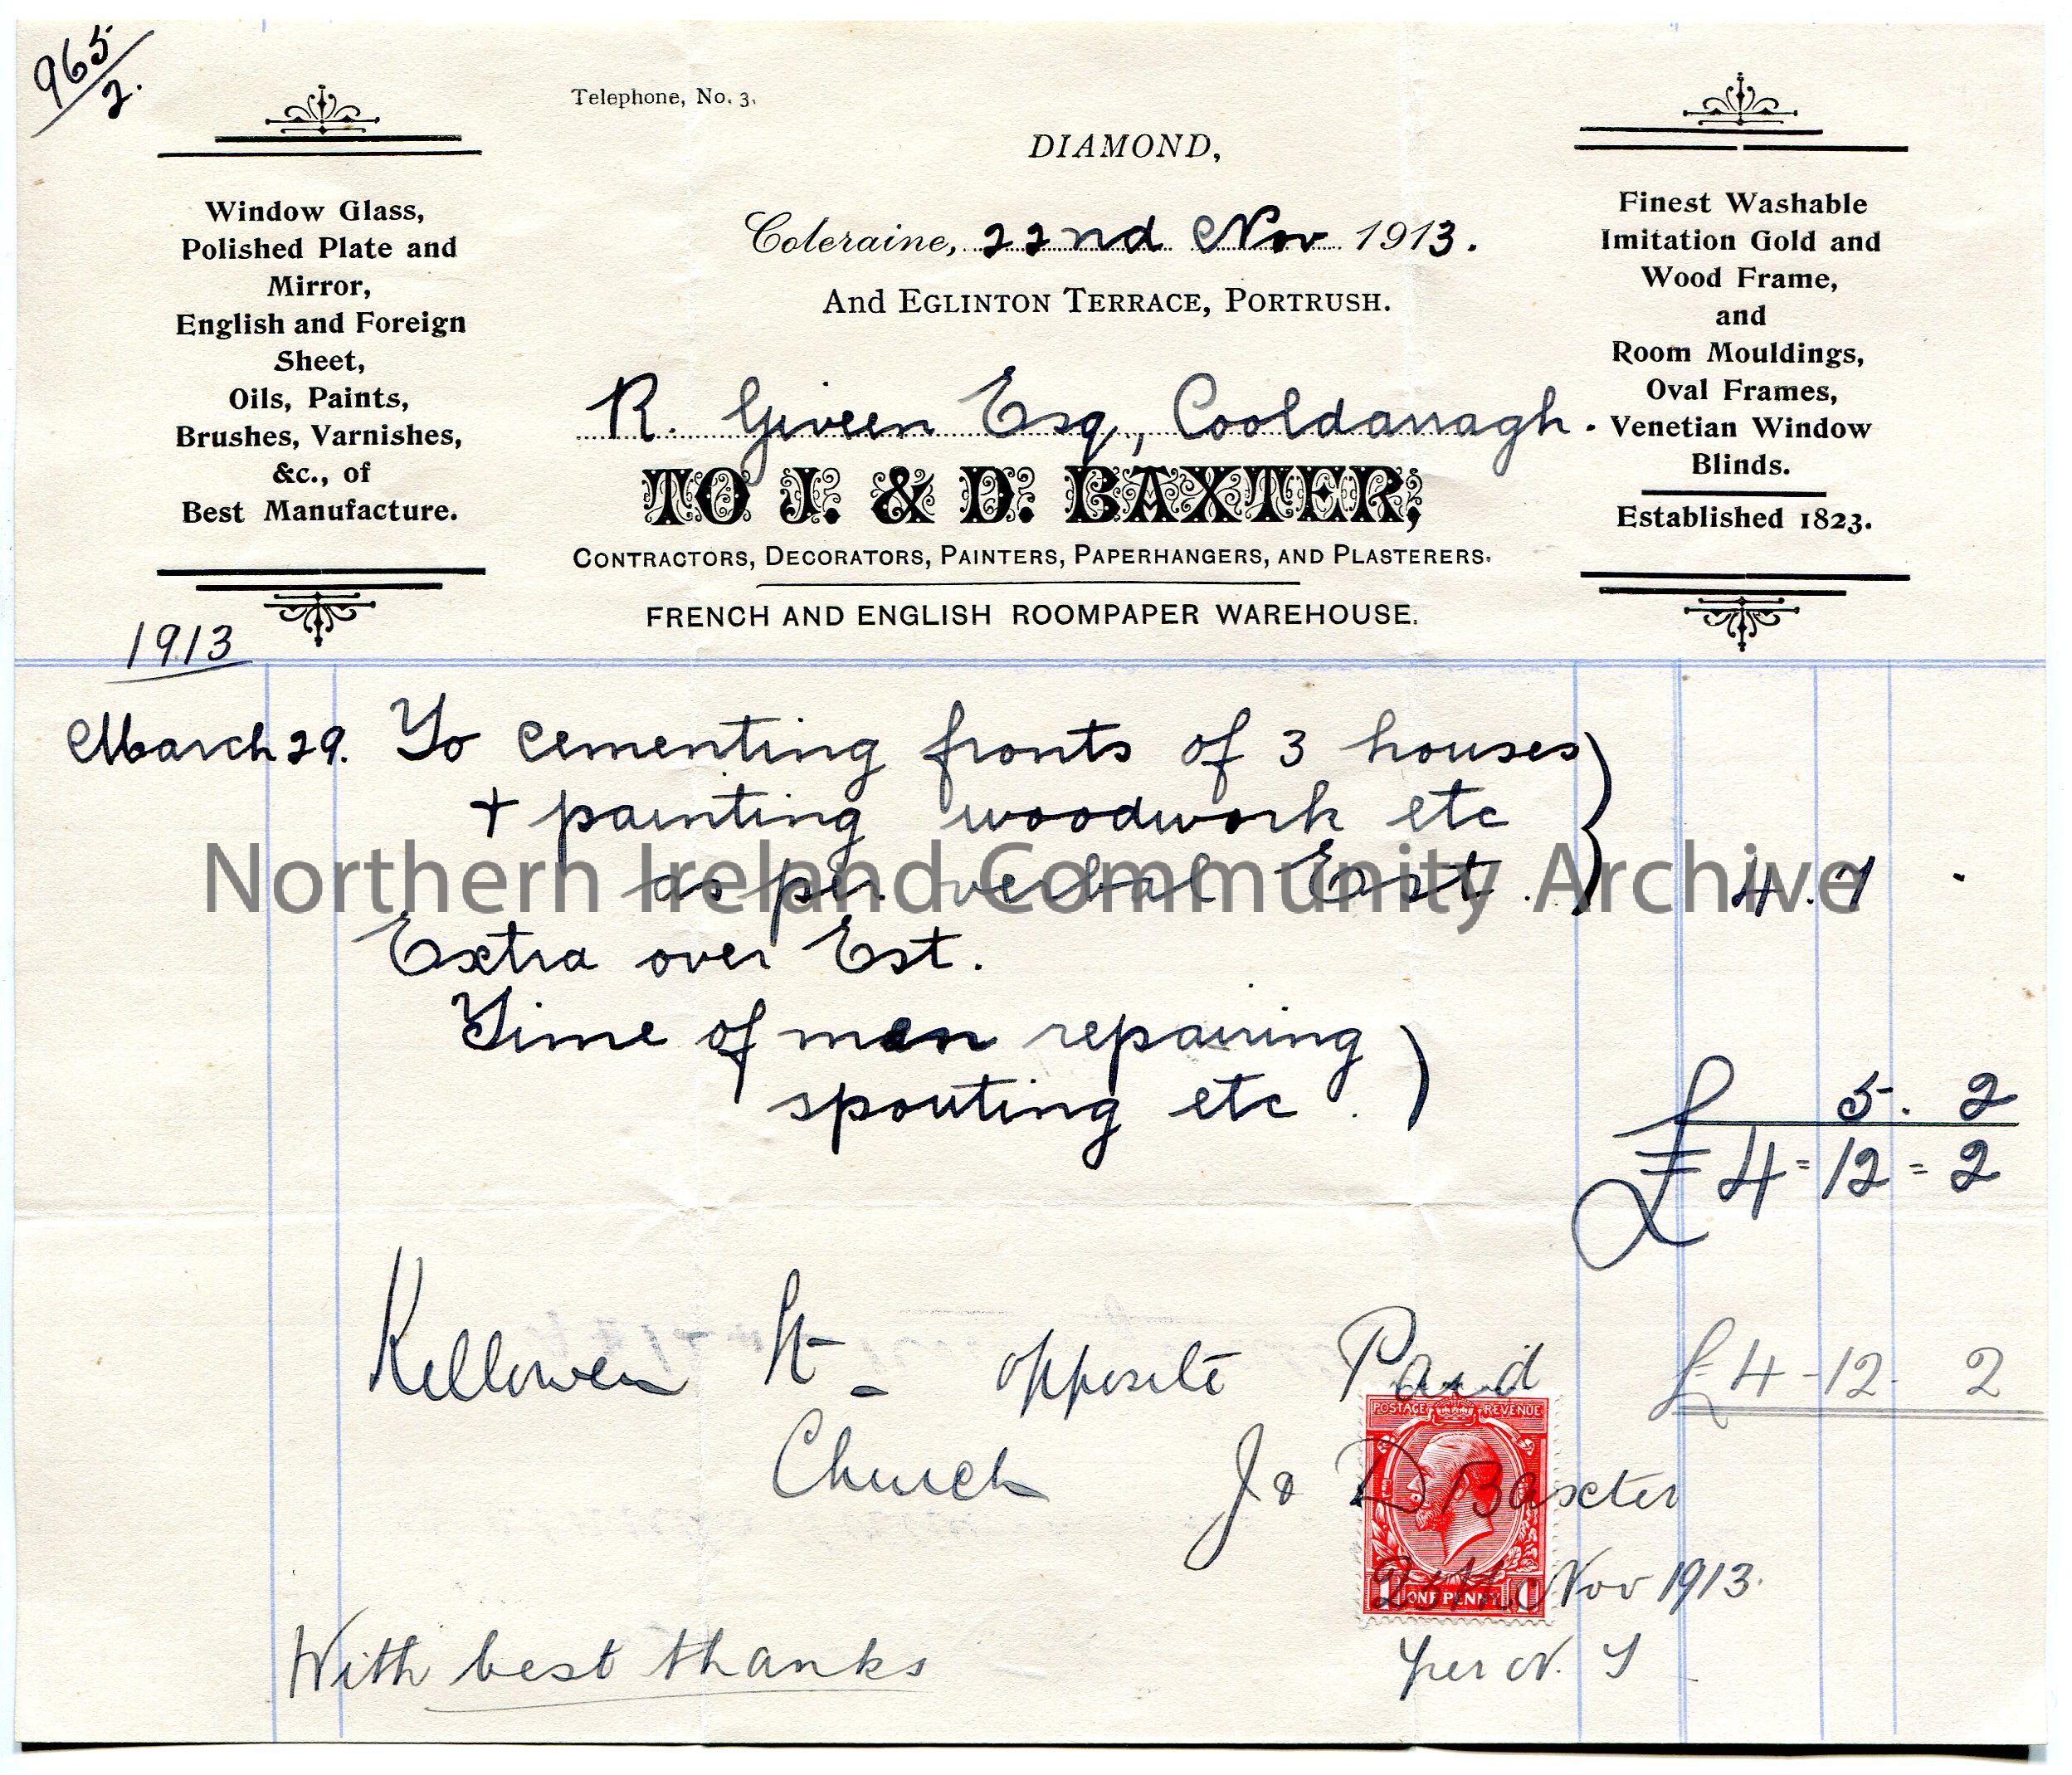 965/2.
Telephone, No. 3.
DIAMOND,
Coleraine, 22nd Nov 1913.
And EGLINTON TERRACE, PORTRUSH.
Window Glass,
Polished Plate and
Mirror,
English and Foreign
Sheet,
Oils, Paints,
Brushes, Varnishes,
&c., of
Best Manufacture.
Finest Washable
Imitation Gold and
Wood Frame,
and
Room Mouldings,
Oval Frames,
Venetian Window
Blinds.
Established 1823.
R. Giveen Esq, Cooldarragh.
TO J. & D. BAXTER,
CONTRACTORS, DECORATORS, PAINTERS, PAPERHANGERS, AND PLASTERERS.
FRENCH AND ENGLISH ROOMPAPER WAREHOUSE.
1913
March 29. To cementing fronts of 3 houses
+ painting woodwork etc
as per verbal Est. 4. 7 -
Northern Ireland Community Archive
Extra over Est.
Time of men repairing
spouting etc. 5. 2
£4=12=2
Killowen St- opposite Paid £4-12-2
Church
POSTAGE REVENUE
J & D Baxter
25th Nov 1913.
1 ONE PENNY 1
With best thanks
per